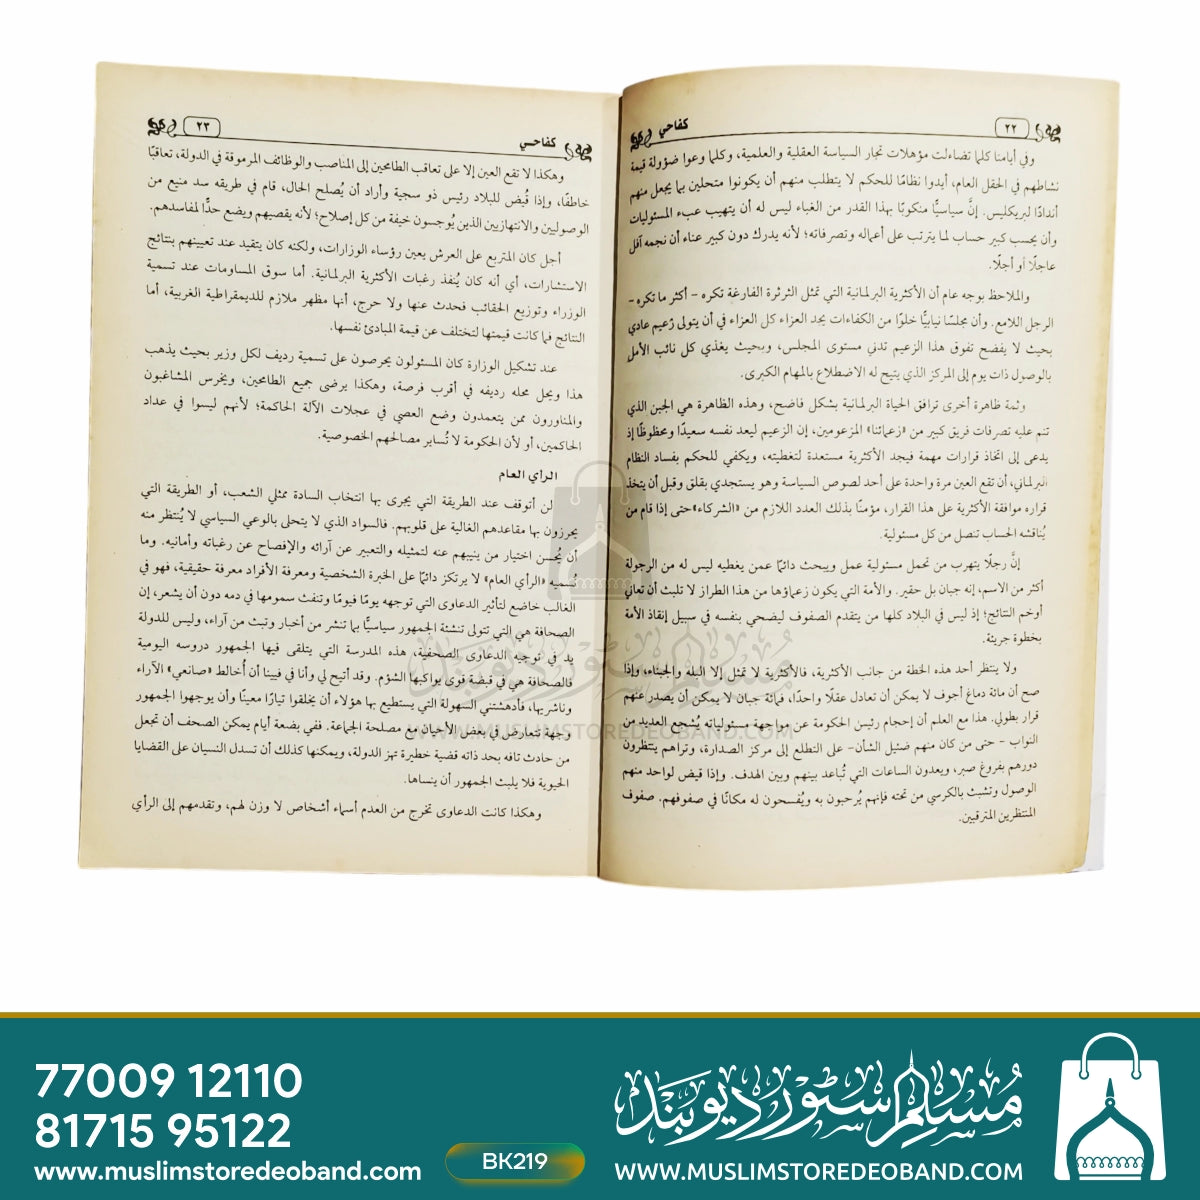 ٢٢
كفاحي
وفي أيامنا كلما تضاءلت مؤهلات تجار السياسة العقلية والعلمية، وكلما وعوا ضؤولة قيمة
نشاطهم في الحقل العام، أيدوا نظامًا للحكم لا يتطلب منهم أن يكونوا متحلين بما يجعل منهم
أندادًا لبريكليس. إنَّ سياسيًّا منكوبًا بهذا القدر من الغباء ليس له أن يتهيب عبء المسئوليات
وأن يحسب كبير حساب لما يترتب على أعماله وتصرفاته؛ لأنه يدرك دون كبير عناء أن نجمه آفل
عاجلًا أو آجلًا.
والملاحظ بوجه عام أن الأكثرية البرلمانية التي تمثل الثرثرة الفارغة تكره – أكثر ما تكره –
الرجل اللامع. وأن مجلسًا نيابيًّا خلوًا من الكفاءات يجد العزاء كل العزاء في أن يتولى زعيم عادي
بحيث لا يفضح تفوق هذا الزعيم تدني مستوى المجلس، وبحيث يغذي كل نائب الأمل
بالوصول ذات يوم إلى المركز الذي يتيح له الاضطلاع بالمهام الكبرى.
وثمة ظاهرة أخرى ترافق الحياة البرلمانية بشكل فاضح، وهذه الظاهرة هي الجبن الذي
تنم عليه تصرفات فريق كبير من «زعمائنا» المزعومين، إن الزعيم ليعد نفسه سعيدًا ومحظوظًا إذ
يدعى إلى اتخاذ قرارات مهمة فيجد الأكثرية مستعدة لتغطيته، ويكفي للحكم بفساد النظام
البرلماني، أن تقع العين مرة واحدة على أحد لصوص السياسة وهو يستجدي بقلق وقبل أن يتخذ
قراره موافقة الأكثرية على هذا القرار، مؤمنًا بذلك العدد اللازم من «الشركاء» حتى إذا قام من
يُناقشه الحساب تنصل من كل مسئولية.
إنَّ رجلًا يتهرب من تحمل مسئولية عمل ويبحث دائمًا عمن يغطيه ليس له من الرجولة
أكثر من الاسم، إنه جبان بل حقير. والأمة التي يكون زعماؤها من هذا الطراز لا تلبث أن تعاني
أوخم النتائج؛ إذ ليس في البلاد كلها من يتقدم الصفوف ليضحي بنفسه في سبيل إنقاذ الأمة
بخطوة جريئة.
ولا ينتظر أحد هذه الخطة من جانب الأكثرية، فالأكثرية لا تمثل إلا البله والجبناء، وإذا
صح أن مائة دماغ أجوف لا يمكن أن تعادل عقلًا واحدًا، فمائة جبان لا يمكن أن يصدر عنهم
قرار بطولي. هذا مع العلم أن إحجام رئيس الحكومة عن مواجهة مسئولياته يُشجع العديد من
النواب – حتى من كان منهم ضئيل الشأن– على التطلع إلى مركز الصدارة، وتراهم ينتظرون
دورهم بفروغ صبر، ويعدون الساعات التي تُباعد بينهم وبين الهدف. وإذا قيض لواحد منهم
الوصول وتشبث بالكرسي من تحته فإنهم يُرحبون به ويُفسحون له مكانًا في صفوفهم، صفوف
المنتظرين المترقبين.
كفاحي
٢٣
وهكذا لا تقع العين إلا على تعاقب الطامحين إلى المناصب والوظائف المرموقة في الدولة، تعاقبًا
خاطفًا، وإذا قُيض للبلاد رئيس ذو سجية وأراد أن يُصلح الحال، قام في طريقه سد منيع من
الوصوليين والانتهازيين الذين يُوجسون خيفة من كل إصلاح؛ لأنه يقصيهم ويضع حدًّا لمفاسدهم.
أجل كان المتربع على العرش يعين رؤساء الوزارات، ولكنه كان يتقيد عند تعيينهم بنتائج
الاستشارات، أي أنه كان يُنفذ رغبات الأكثرية البرلمانية. أما سوق المساومات عند تسمية
الوزراء وتوزيع الحقائب فحدث عنها ولا حرج، أنها مظهر ملازم للديمقراطية الغربية، أما
النتائج فما كانت قيمتها لتختلف عن قيمة المبادئ نفسها.
عند تشكيل الوزارة كان المسئولون يحرصون على تسمية رديف لكل وزير بحيث يذهب
هذا ويحل محله رديفه في أقرب فرصة، وهكذا يرضى جميع الطامحين، ويخرس المشاغبون
والمناورون ممن يتعمدون وضع العصي في عجلات الآلة الحاكمة؛ لأنهم ليسوا في عداد
الحاكمين، أو لأن الحكومة لا تُساير مصالحهم الخصوصية.
الرأي العام
لن أتوقف عند الطريقة التي يجرى بها انتخاب السادة ممثلي الشعب، أو الطريقة التي
يحرزون بها مقاعدهم الغالية على قلوبهم. فالسواد الذي لا يتحلى بالوعي السياسي لا يُنتظر منه
أن يُحسن اختيار من ينيبهم عنه لتمثيله والتعبير عن آرائه والإفصاح عن رغباته وأمانيه. وما
نُسميه «الرأي العام» لا يرتكز دائمًا على الخبرة الشخصية ومعرفة الأفراد معرفة حقيقية، فهو في
الغالب خاضع لتأثير الدعاوى التي توجهه يومًا فيومًا وتنفث سمومها في دمه دون أن يشعر، إن
الصحافة هي التي تتولى تنشئة الجمهور سياسيًّا بما تنشر من أخبار وتبث من آراء، وليس للدولة
يد في توجيه الدعاوى الصحفية، هذه المدرسة التي يتلقى فيها الجمهور دروسه اليومية
فالصحافة هي في قبضة قوى يواكبها الشؤم. وقد أتيح لي وأنا في فيينا أن أُخالط «صانعي» الآراء
وناشريها، فأدهشتني السهولة التي يستطيع بها هؤلاء أن يخلقوا تيارًا معينًا وأن يوجهوا الجمهور
وجهة تتعارض في بعض الأحيان مع مصلحة الجماعة. ففي بضعة أيام يمكن الصحف أن تجعل
من حادث تافه بحد ذاته قضية خطيرة تهز الدولة، ويمكنها كذلك أن تسدل النسيان على القضايا
الحيوية فلا يلبث الجمهور أن ينساها.
وهكذا كانت الدعاوى تخرج من العدم أسماء أشخاص لا وزن لهم، وتقدمهم إلى الرأي
مسلم سٹور ديوبند
WWW.MUSLIMSTOREDEOBAND.COM
77009 12110
81715 95122
www.muslimstoredeoband.com
BK219
مسلم سٹور ديوبند
WWW.MUSLIMSTOREDEOBAND.COM